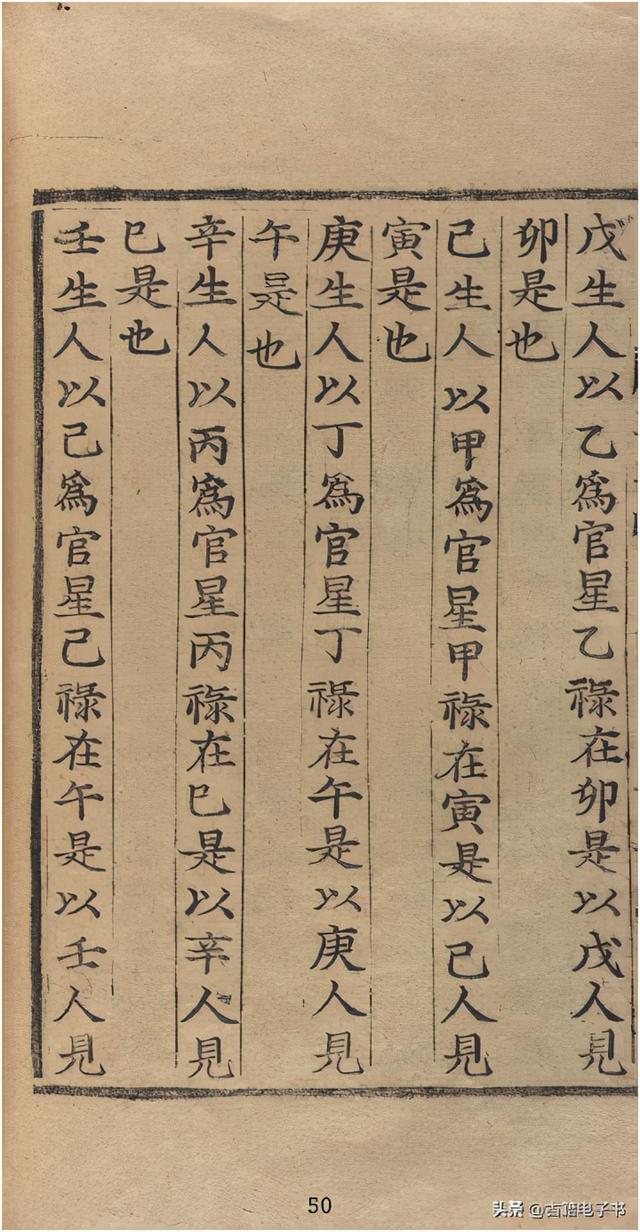 戊生人以乙為官星乙祿在卯是以戊人見
卯是也
己生人以甲為官星甲祿在寅是以己人見
寅是也
庚生人以丁為官星丁祿在午是以庚人見
午是也
辛生人以丙為官星丙祿在巳是以辛人見
巳是也
壬生人以己為官星己祿在午是以壬人見
50
头条 @古籍电子书